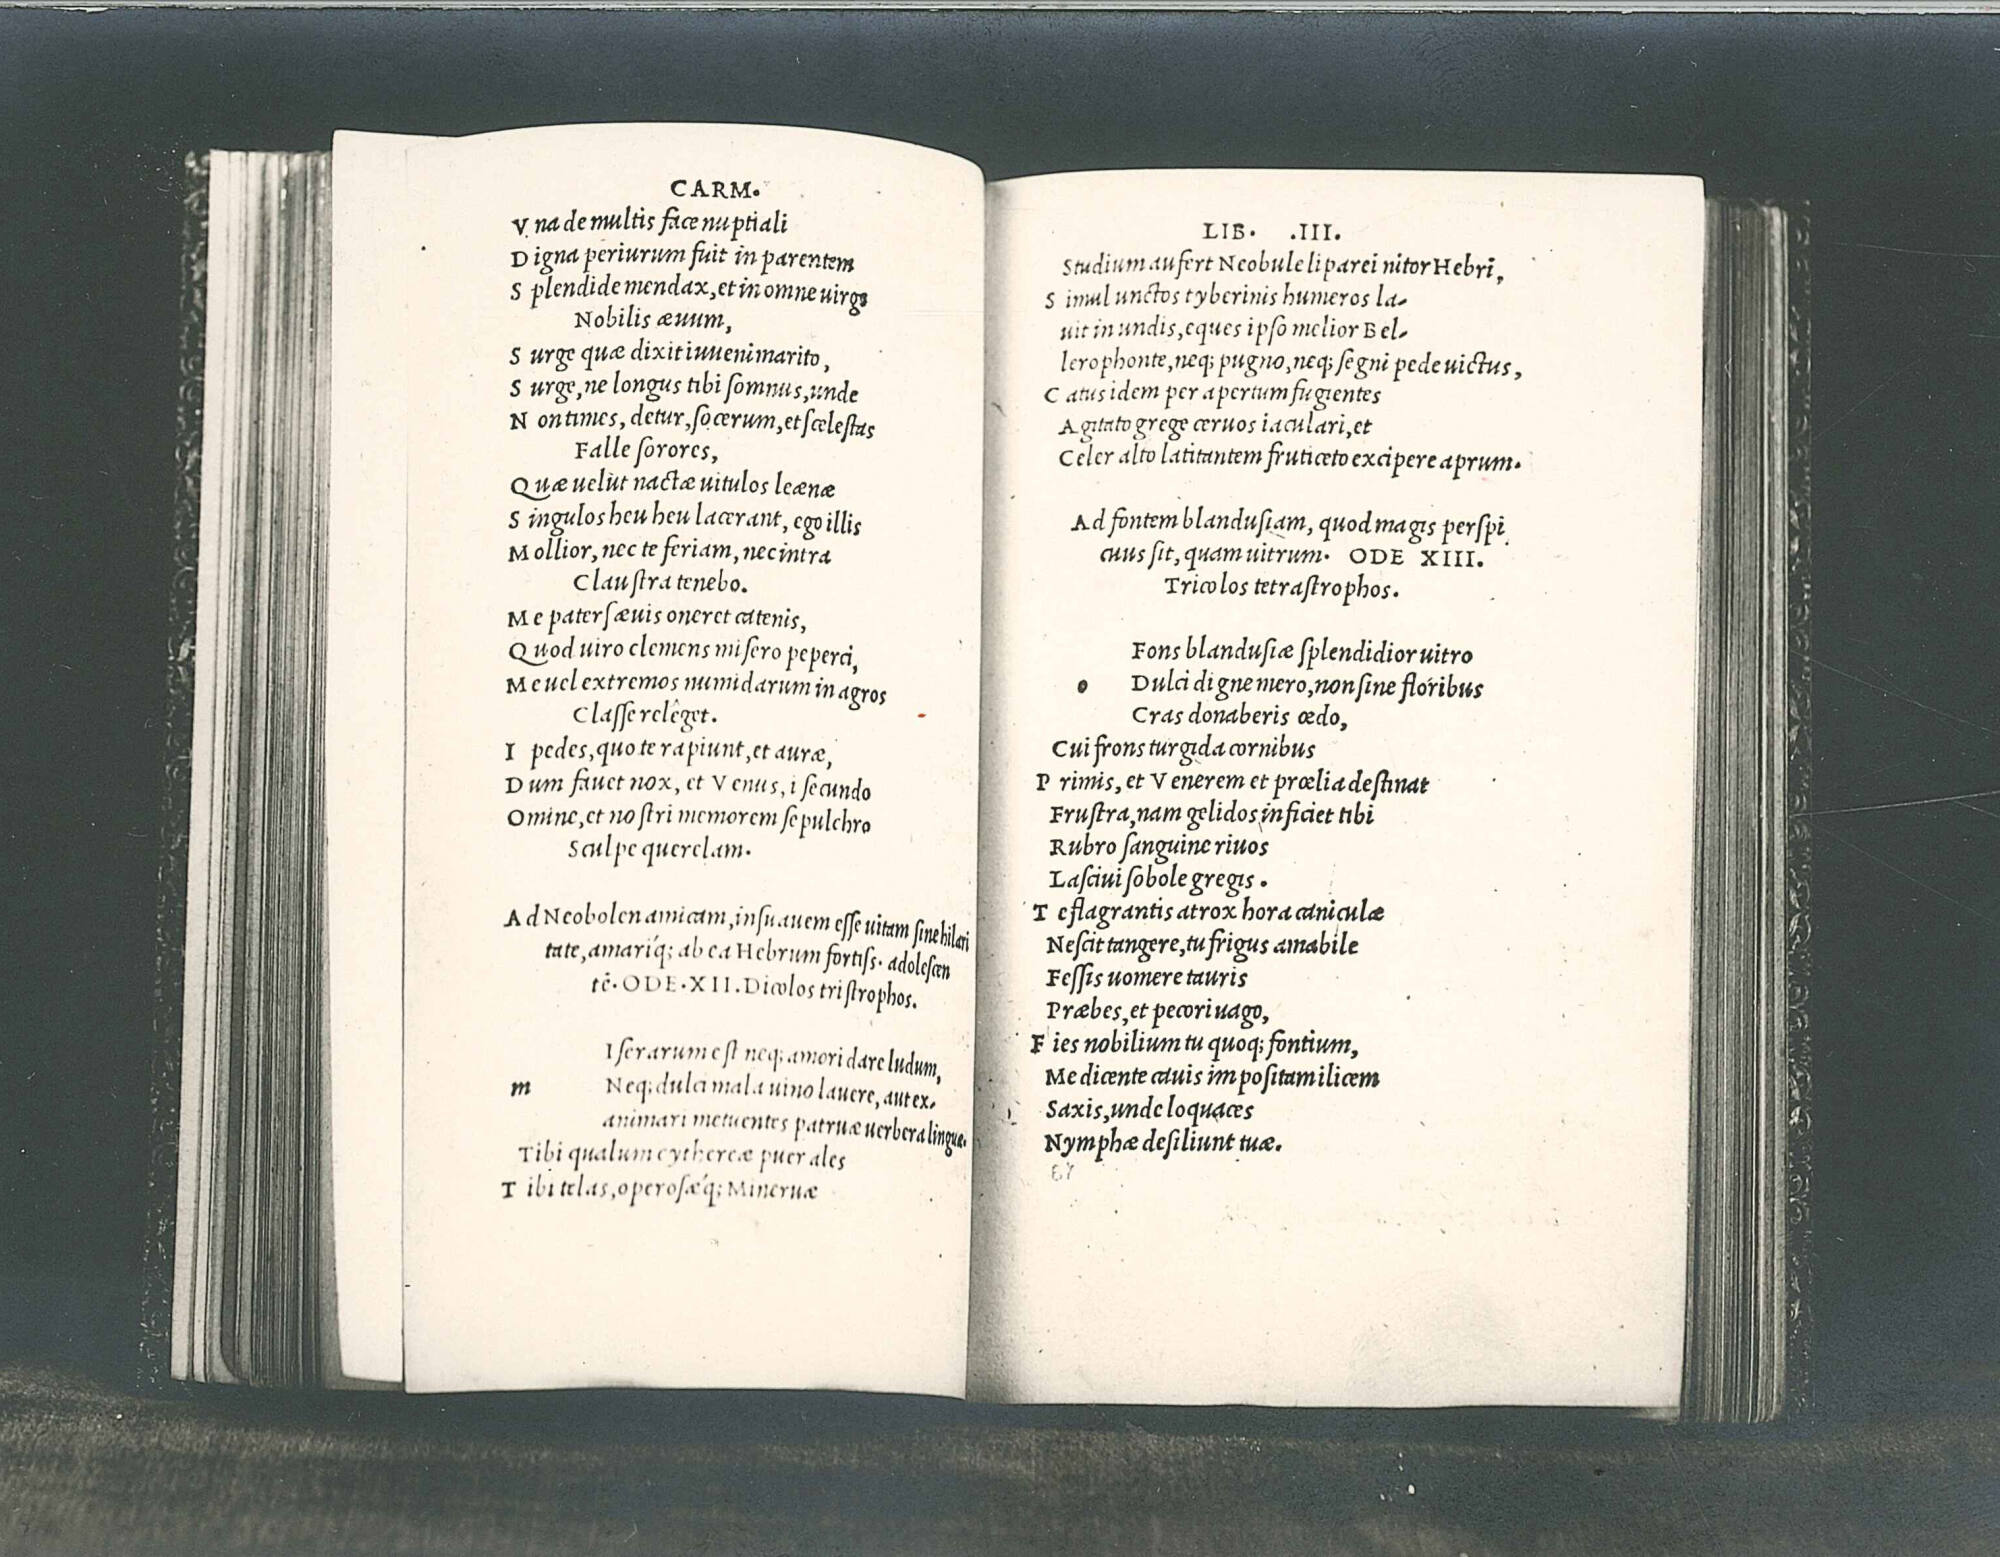 CARM.
V na de multis face nuptiali
D igna periurum fuit in parentem
S plendide mendax, et in omne uirgo
Nobilis æuum,
S urge quæ dixit iuueni marito,
S urge, ne longus tibi somnus, unde
N on times, detur, socerum, et scelestas
Falle sorores,
Quæ uelut nactæ uitulos leænæ
S ingulos heu heu lacerant, ego illis
M ollior, nec te feriam, nec intra
Claustra tenebo.
M e pater sæuis oneret catenis,
Quod uiro clemens misero peperci,
M e uel extremos numidarum in agros
Classe releget.
I pedes, quo te rapiunt, et auræ,
D um fauet nox, et Venus, i secundo
Omine, et nostri memorem sepulchro
Sculpe querelam.
Ad Neobolen amicam, insuauem esse uitam sine hilari
tate, amariq; ab ea Hebrum fortiss. adolescen
tē. ODE. XII. Dicolos tristrophos.
I serarum est neq; amori dare ludum,
m Neq; dulci mala uino lauere, aut ex-
animari metuentes patruæ uerbera linguæ.
Tibi qualum cythereæ puer ales
T ibi telas, operosæq; Mineruæ
LIB. .III.
Studium aufert Neobule liparei nitor Hebri,
S imul unctos tyberinis humeros la-
uit in undis, eques ipso melior Bel-
lerophonte, neq; pugno, neq; segni pede uictus,
C atus idem per apertum fugientes
Agitato grege ceruos iaculari, et
Celer alto latitantem fruticeto excipere aprum.
Ad fontem blandusiam, quod magis perspi
cuus sit, quam uitrum. ODE XIII.
Tricolos tetrastrophos.
Fons blandusiæ splendidior uitro
o Dulci digne mero, non sine floribus
Cras donaberis œdo,
Cui frons turgida cornibus
P rimis, et Venerem et prœlia destinat
Frustra, nam gelidos inficiet tibi
Rubro sanguine riuos
Lasciui sobole gregis.
T e flagrantis atrox hora caniculæ
Nescit tangere, tu frigus amabile
Fessis uomere tauris
Præbes, et pecori uago,
F ies nobilium tu quoq; fontium,
Me dicente cauis impositam ilicem
Saxis, unde loquaces
Nymphæ desiliunt tuæ.